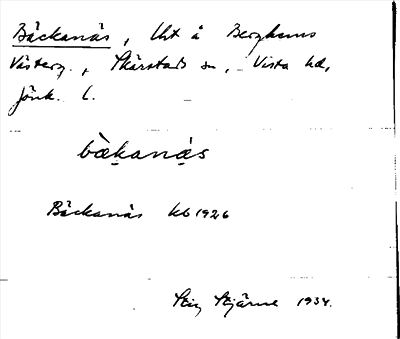 Bäckanäs, Uht å Berghems
Västerg., Skärstads sn, Vista hd,
Jönk. l.
bækanæs
Bäckanäs kb 1926
Stig Stjärne 1934.